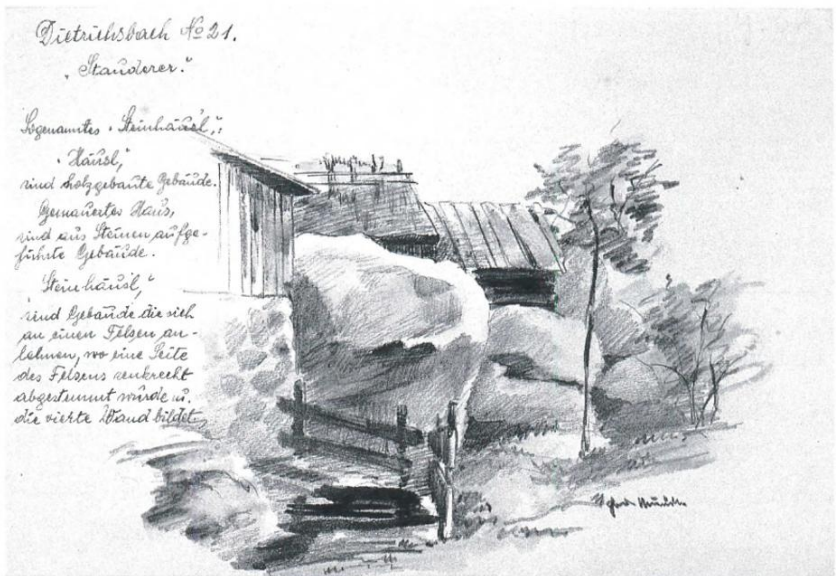 Dietrichsbach No 21.
„Stauderer.“
Sogenanntes „Steinhäusl“:
„Häusl“,
sind holzgebaute Gebäude.
Gemauertes Haus,
sind aus Steinen aufge-
führte Gebäude.
„Steinhäusl“,
sind Gebäude die sich
an einen Felsen an-
lehnen, wo eine Seite
des Felsens senkrecht
abgestemmt wurde u.
die vierte Wand bildet,